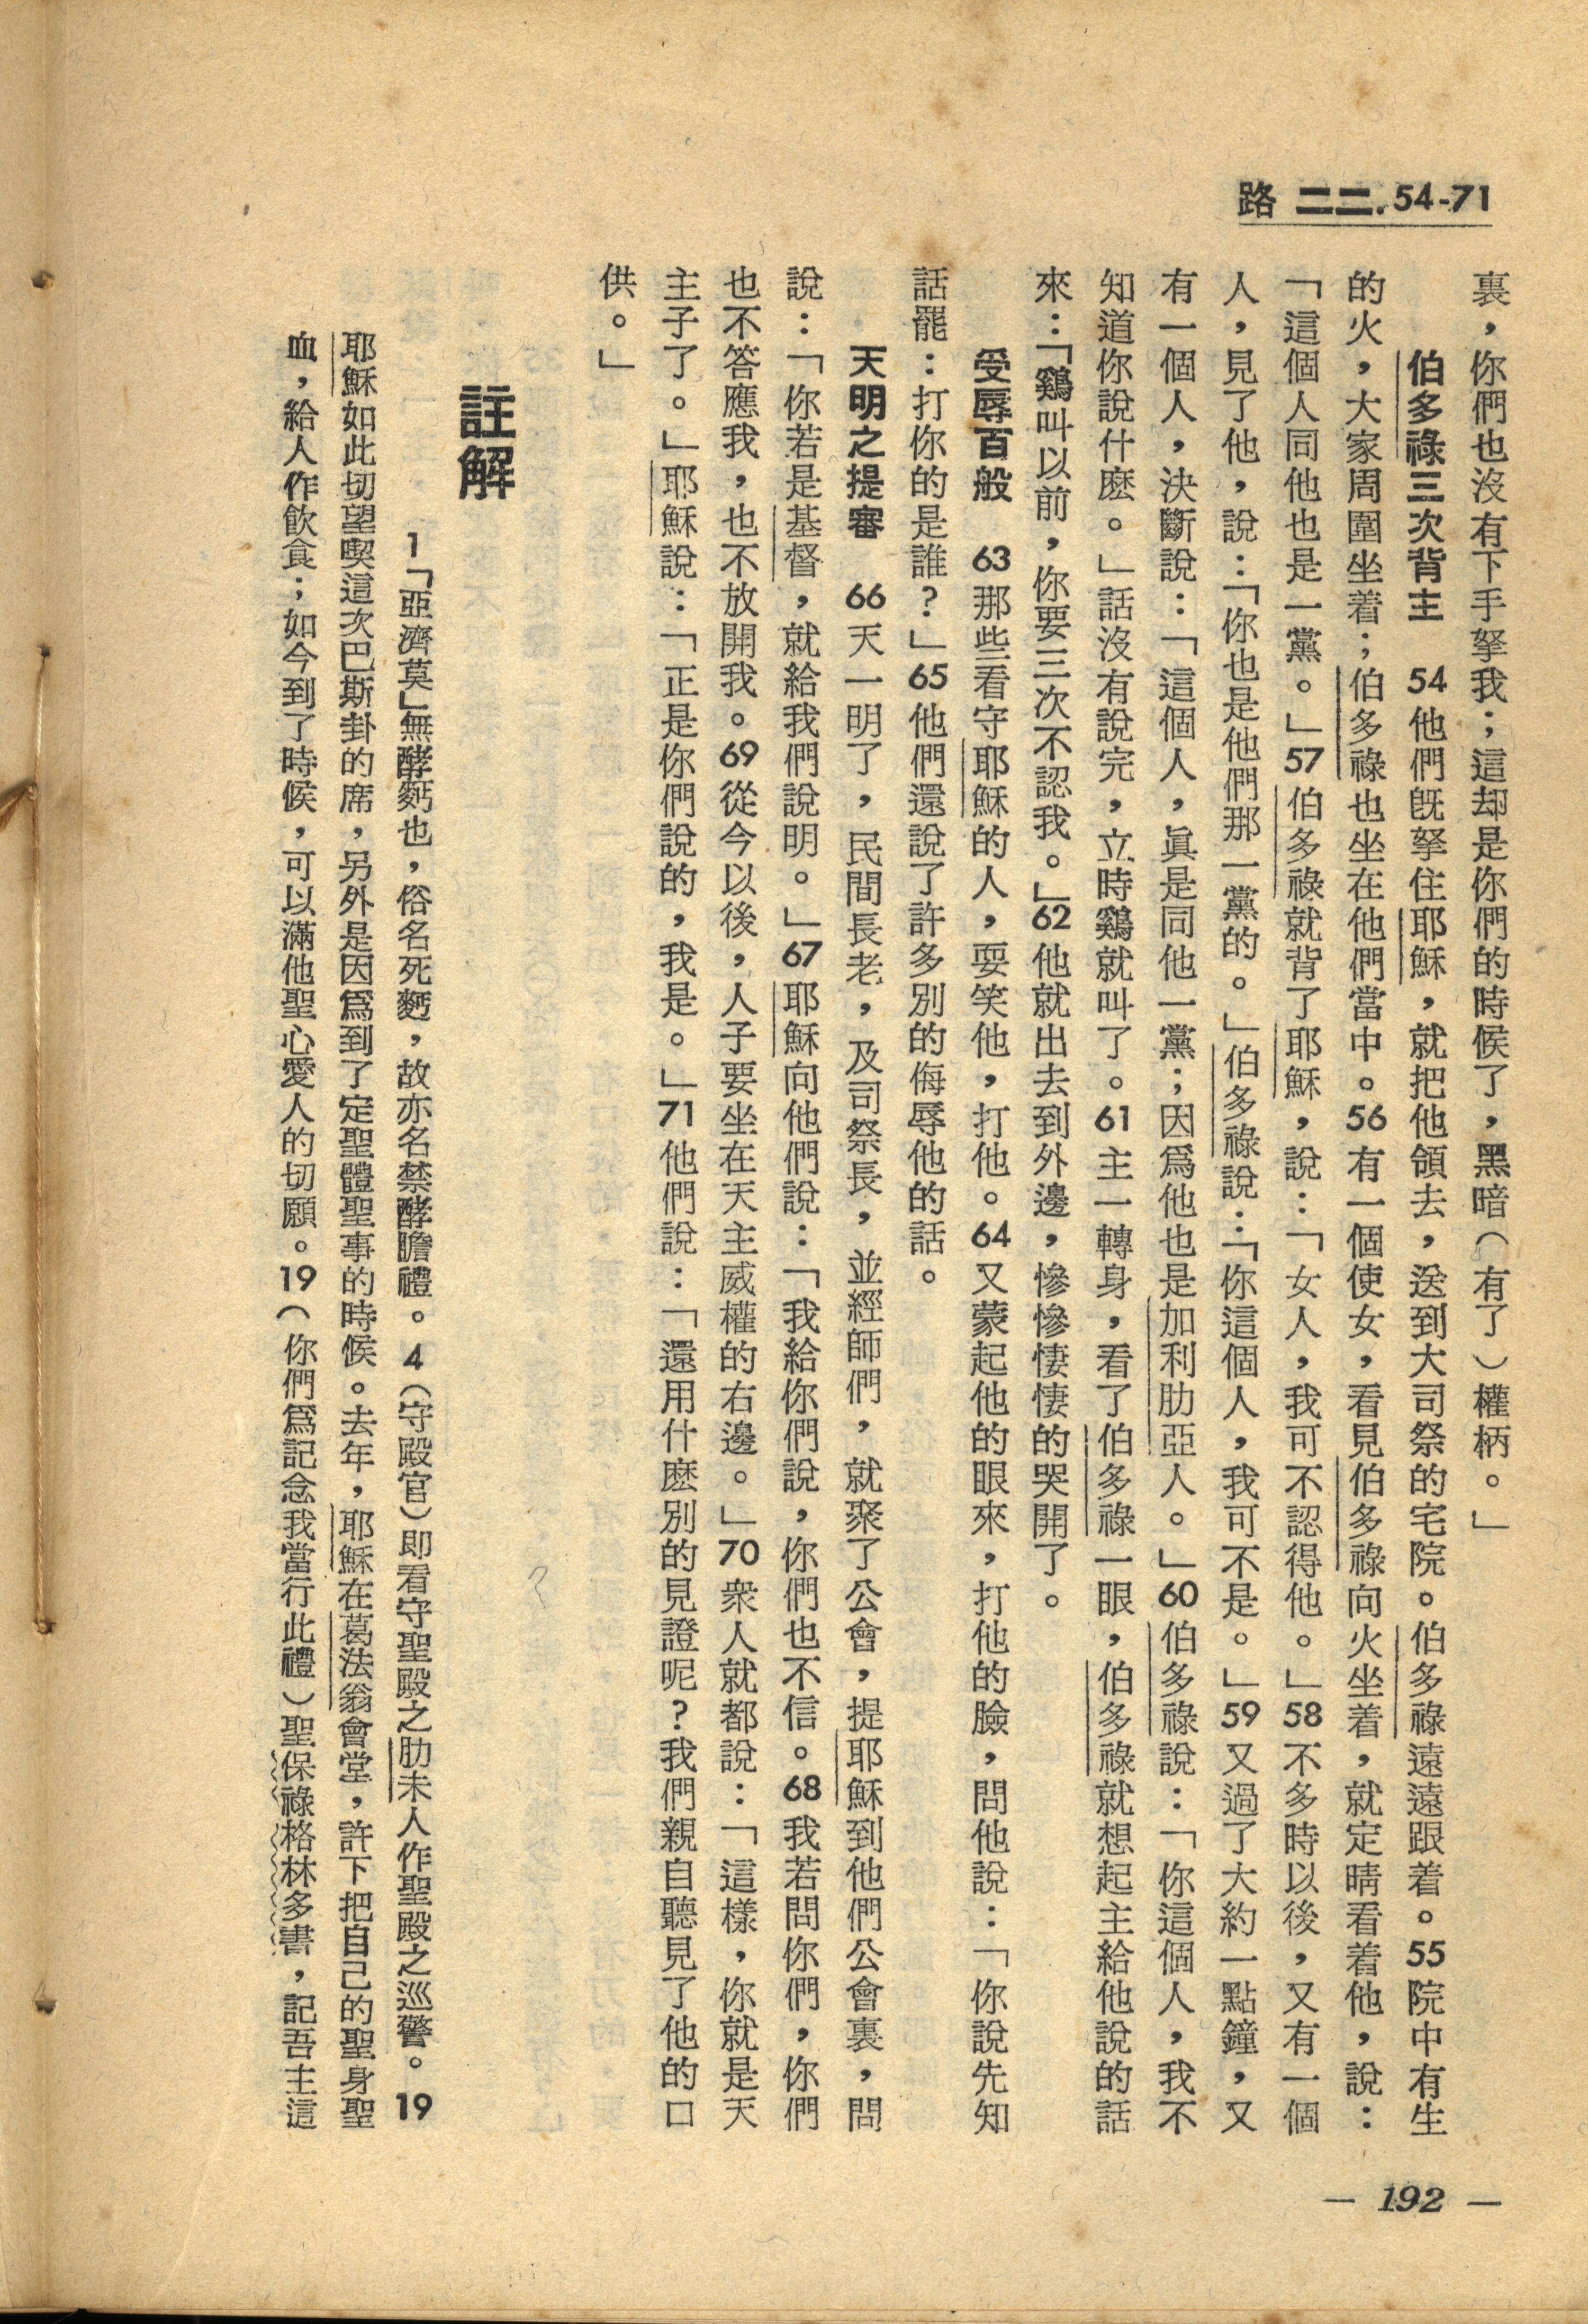 路 二二. 54-71
裏，你們也沒有下手拏我；這却是你們的時候了，黑暗（有了）權柄。」
伯多祿三次背主　54 他們旣拏住耶穌，就把他領去，送到大司祭的宅院。伯多祿遠遠跟着。55 院中有生
的火，大家周圍坐着；伯多祿也坐在他們當中。56 有一個使女，看見伯多祿向火坐着，就定睛看着他，說：
「這個人同他也是一黨。」57 伯多祿就背了耶穌，說：「女人，我可不認得他。」58 不多時以後，又有一個
人，見了他，說：「你也是他們那一黨的。」伯多祿說：「你這個人，我可不是。」59 又過了大約一點鐘，又
有一個人，決斷說：「這個人，眞是同他一黨；因爲他也是加利肋亞人。」60 伯多祿說：「你這個人，我不
知道你說什麽。」話沒有說完，立時鷄就叫了。61 主一轉身，看了伯多祿一眼，伯多祿就想起主給他說的話
來：「鷄叫以前，你要三次不認我。」62 他就出去到外邊，慘慘悽悽的哭開了。
受辱百般　63 那些看守耶穌的人，耍笑他，打他。64 又蒙起他的眼來，打他的臉，問他說：「你說先知
話罷：打你的是誰？」65 他們還說了許多別的侮辱他的話。
天明之提審　66 天一明了，民間長老，及司祭長，並經師們，就聚了公會，提耶穌到他們公會裏，問
說：「你若是基督，就給我們說明。」67 耶穌向他們說：「我給你們說，你們也不信。68 我若問你們，你們
也不答應我，也不放開我。69 從今以後，人子要坐在天主威權的右邊。」70 衆人就都說：「這樣，你就是天
主子了。」耶穌說：「正是你們說的，我是。」71 他們說：「還用什麽別的見證呢？我們親自聽見了他的口
供。」
註解
1「亞濟莫」無酵麪也，俗名死麪，故亦名禁酵瞻禮。4（守殿官）即看守聖殿之肋未人作聖殿之巡警。19
耶穌如此切望喫這次巴斯卦的席，另外是因爲到了定聖體聖事的時候。去年，耶穌在葛法翁會堂，許下把自己的聖身聖
血，給人作飮食；如今到了時候，可以滿他聖心愛人的切願。19（你們爲記念我當行此禮）聖保祿格林多書，記吾主這
— 192 —